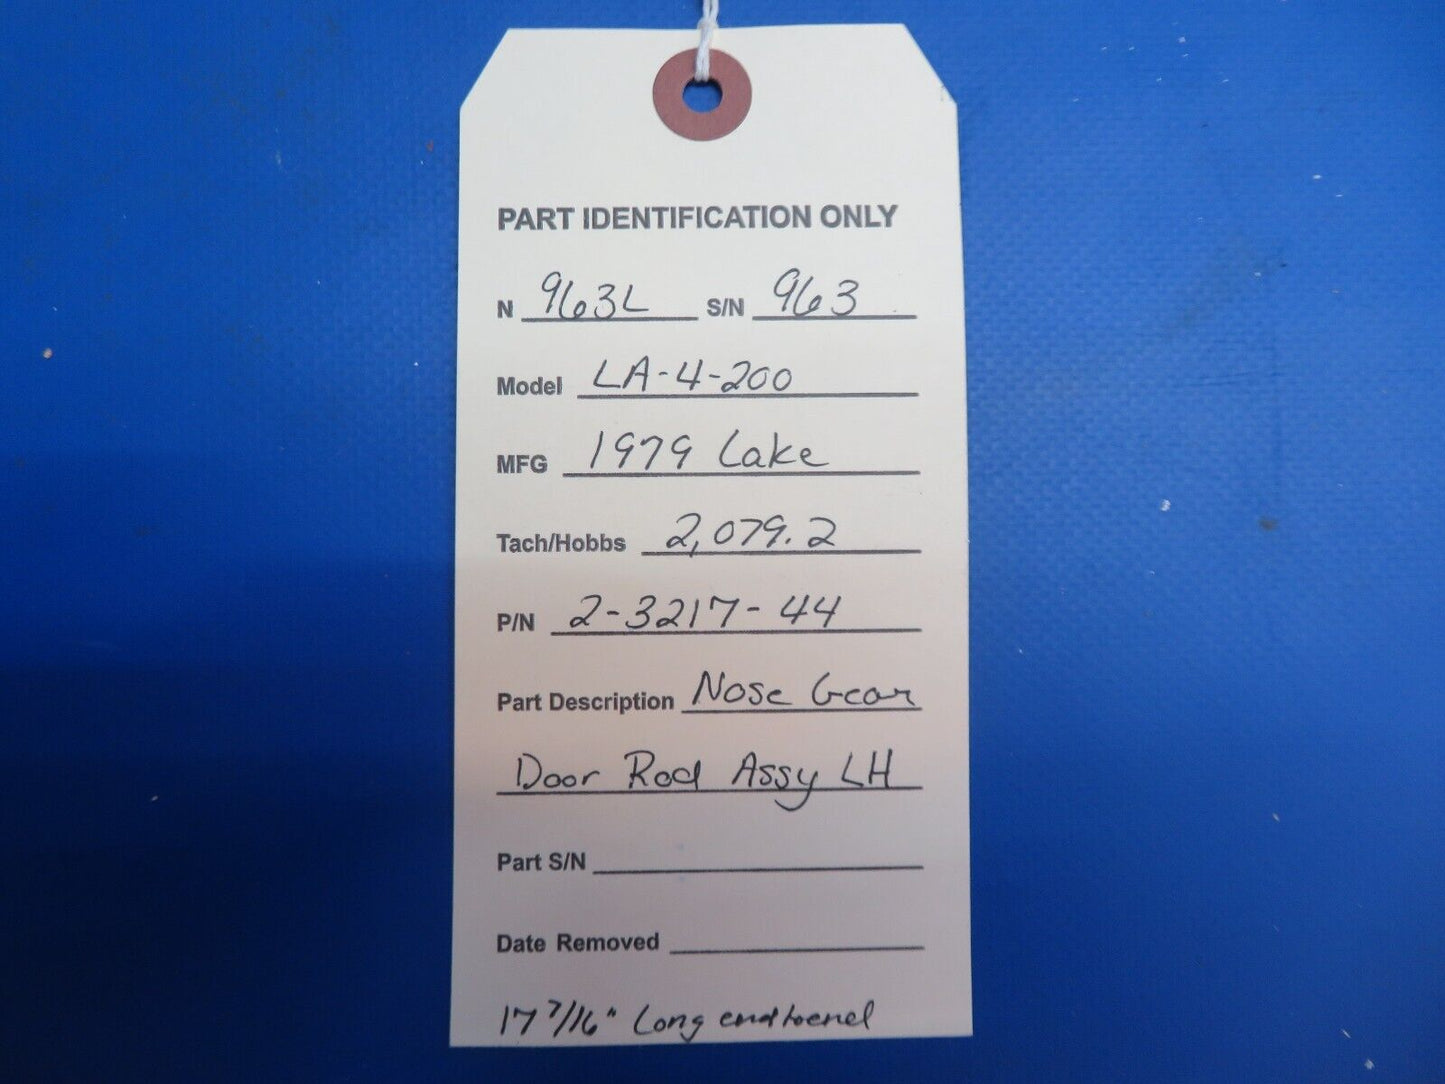 PART IDENTIFICATION ONLY
N 963L S/N 963
Model LA-4-200
MFG 1979 Lake
Tach/Hobbs 2,079.2
P/N 2-3217-44
Part Description Nose Gear
Door Rod Assy LH
Part S/N
Date Removed
17 7/16" Long end to end